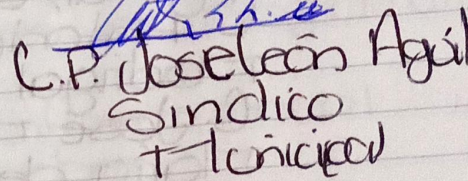 C.P. Joseleón Aguil
Sindico
Municipal